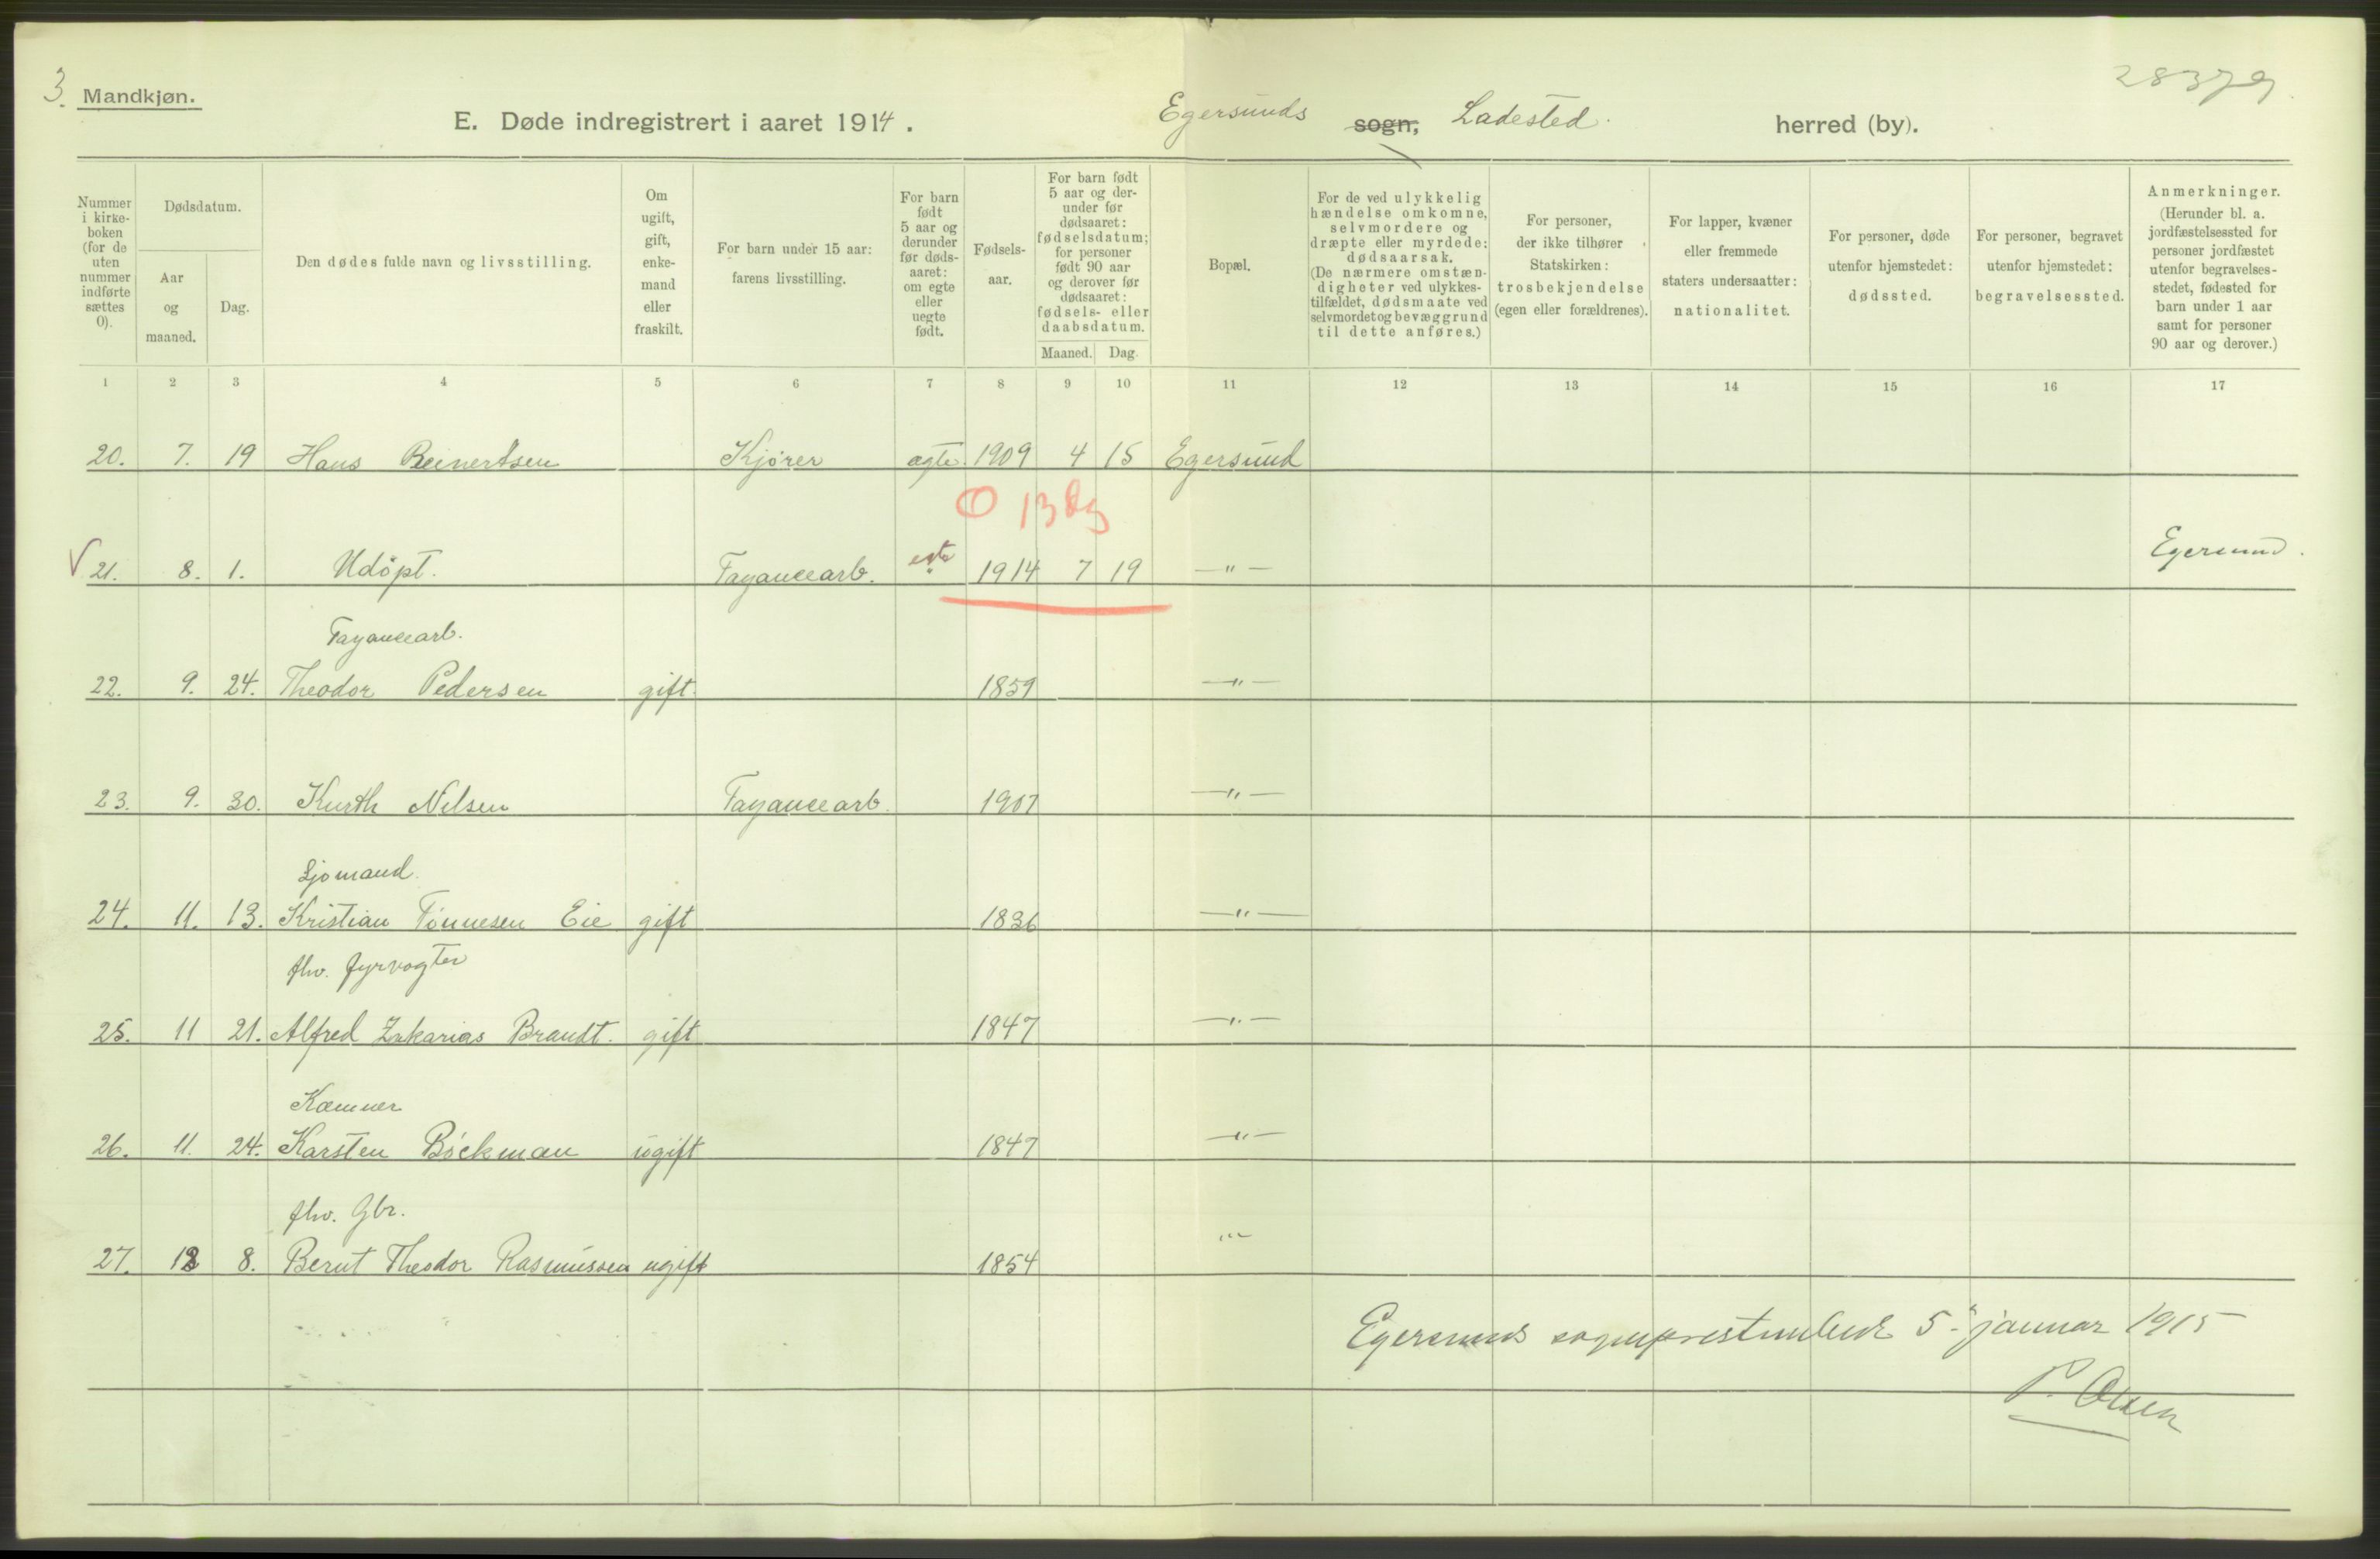 3.
Mandkjøn.
28379
E. Døde indregistrert i aaret 1914.
Egersunds sogn, Ladested. herred (by).
Nummer i kirke-boken (for de uten nummer indførte sættes 0).
Dødsdatum.
Aar og maaned.
Dag.
Den dødes fulde navn og livsstilling.
Om ugift, gift, enke-mand eller fraskilt.
For barn under 15 aar: farens livsstilling.
For barn født 5 aar og derunder før døds-aaret: om egte eller uegte født.
Fødsels-aar.
For barn født 5 aar og der-under før dødsaaret: fødselsdatum; for personer født 90 aar og derover før dødsaaret: fødsels- eller daabsdatum.
Maaned. Dag.
Bopæl.
For de ved ulykkelig hændelse omkomne, selvmordere og dræpte eller myrdede: dødsaarsak. (De nærmere omstæn-digheter ved ulykkes-tilfældet, dødsmaate ved selvmordet og bevæggrund til dette anføres.)
For personer, der ikke tilhører Statskirken: trosbekjendelse (egen eller forældrenes).
For lapper, kvæner eller fremmede staters undersaatter: nationalitet.
For personer, døde utenfor hjemstedet: dødssted.
For personer, begravet utenfor hjemstedet: begravelsessted.
Anmerkninger. (Herunder bl. a. jordfæstelsessted for personer jordfæstet utenfor begravelses-stedet, fødested for barn under 1 aar samt for personer 90 aar og derover.)
1 2 3 4 5 6 7 8 9 10 11 12 13 14 15 16 17
20. 7. 19 Hans Reinertsen Kjører ægte. 1909 4 15 Egersund
0 13 dg
V 21. 8. 1. Udøpt. Fayancearb. egte 1914 7 19 —"— Egersund.
Fayancearb.
22. 9. 24. Theodor Pedersen gift. 1859 —"—
23. 9. 30. Kurth Nilsen Fayancearb. 1907 —"—
Sjømand.
24. 11. 13. Kristian Tønnesen Eie gift 1836 —"—
fhv. fyrvogter
25. 11 21. Alfred Zakarias Brandt. gift 1847 —"—
Kæmner
26. 11. 24. Karsten Bøckman ugift 1847 —"—
fhv. Gbr.
27. 12 8. Berut Theodor Rasmussen ugift 1854 "
Egersunds sogneprestembede 5. januar 1915
P. Olsen